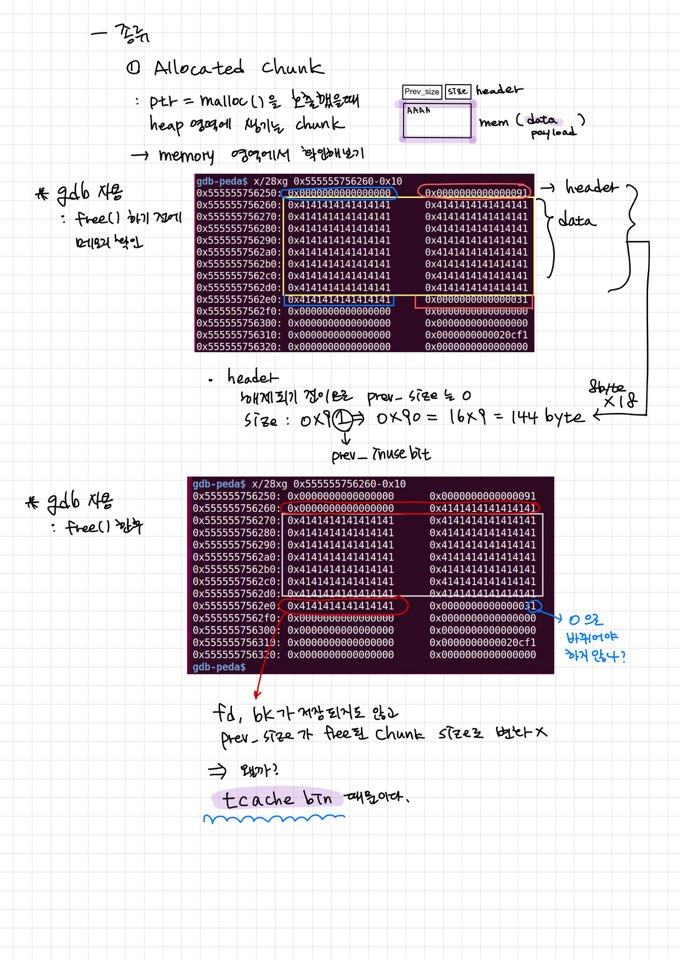 - 종류
① Allocated Chunk
: ptr = malloc()을 호출했을때
heap 영역에 생기는 chunk
→ memory 영역에서 확인해보기
Prev_size size header
AAAA
mem (data payload)
* gdb 사용
: free() 하기 전에
메모리 확인
gdb-peda$ x/28xg 0x555555756260-0x10
0x555555756250: 0x0000000000000000 0x0000000000000091
0x555555756260: 0x4141414141414141 0x4141414141414141
0x555555756270: 0x4141414141414141 0x4141414141414141
0x555555756280: 0x4141414141414141 0x4141414141414141
0x555555756290: 0x4141414141414141 0x4141414141414141
0x5555557562a0: 0x4141414141414141 0x4141414141414141
0x5555557562b0: 0x4141414141414141 0x4141414141414141
0x5555557562c0: 0x4141414141414141 0x4141414141414141
0x5555557562d0: 0x4141414141414141 0x4141414141414141
0x5555557562e0: 0x4141414141414141 0x0000000000000031
0x5555557562f0: 0x0000000000000000 0x0000000000000000
0x555555756300: 0x0000000000000000 0x0000000000000000
0x555555756310: 0x0000000000000000 0x0000000000020cf1
0x555555756320: 0x0000000000000000 0x0000000000000000
→ header
data
8byte
×18
· header
해제되기 전이므로 prev_size는 0
size : 0x91 ⇒ 0x90 = 16×9 = 144 byte
prev_inuse bit
* gdb 사용
: free() 한 후
gdb-peda$ x/28xg 0x555555756260-0x10
0x555555756250: 0x0000000000000000 0x0000000000000091
0x555555756260: 0x0000000000000000 0x4141414141414141
0x555555756270: 0x4141414141414141 0x4141414141414141
0x555555756280: 0x4141414141414141 0x4141414141414141
0x555555756290: 0x4141414141414141 0x4141414141414141
0x5555557562a0: 0x4141414141414141 0x4141414141414141
0x5555557562b0: 0x4141414141414141 0x4141414141414141
0x5555557562c0: 0x4141414141414141 0x4141414141414141
0x5555557562d0: 0x4141414141414141 0x4141414141414141
0x5555557562e0: 0x4141414141414141 0x0000000000000031
0x5555557562f0: 0x0000000000000000 0x0000000000000000
0x555555756300: 0x0000000000000000 0x0000000000000000
0x555555756310: 0x0000000000000000 0x0000000000020cf1
0x555555756320: 0x0000000000000000 0x0000000000000000
gdb-peda$
→ 0으로
바뀌어야
하지 않나?
fd, bk가 저장되지도 않고
prev_size가 free된 chunk size로 변하다 x
⇒ 왜까?
tcache bin 때문이다.